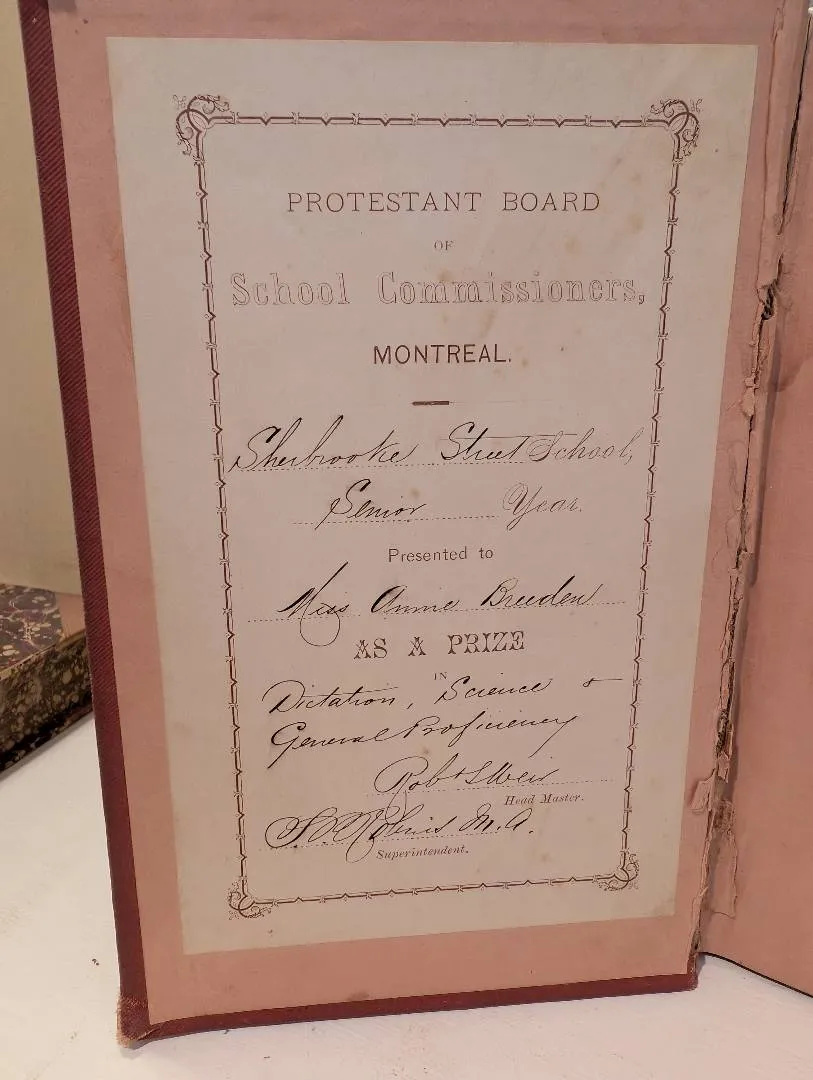 PROTESTANT BOARD
OF
School Commissioners,
MONTREAL.
Sherbrooke Street School,
Senior Year.
Presented to
Miss Annie Breeden
AS A PRIZE
IN
Dictation, Science &
General Proficiency
Robt S Weir
Head Master.
Robins M.A.
Superintendent.